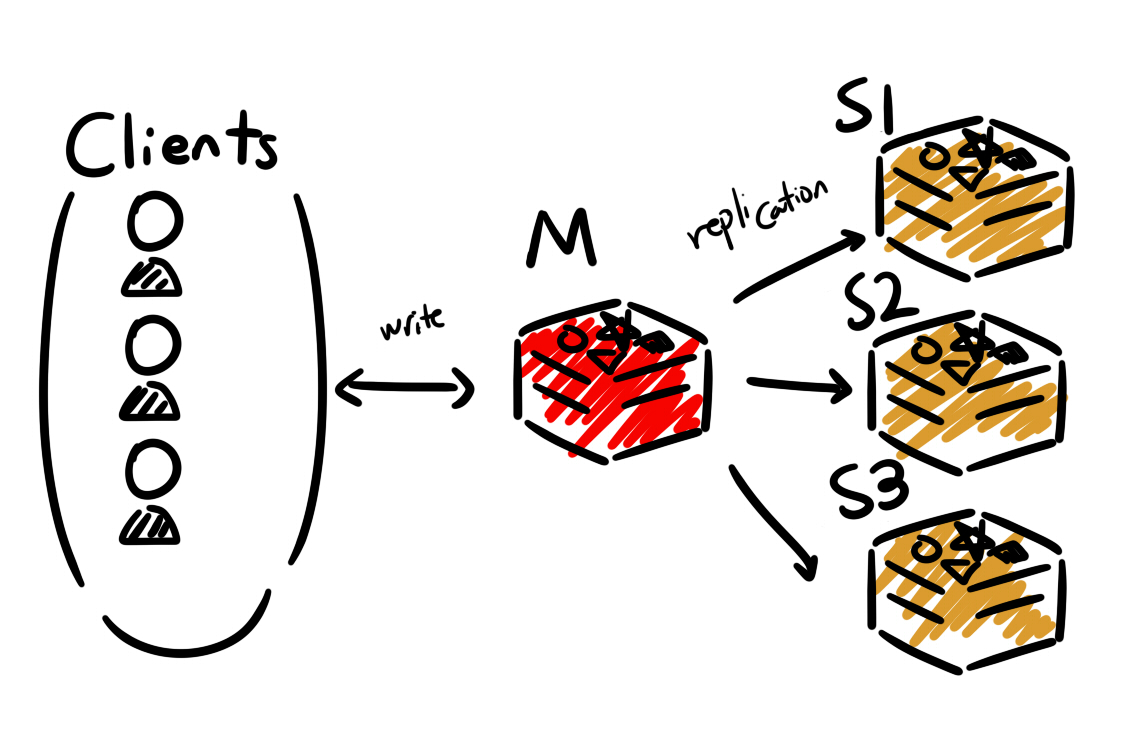 Clients
write
M
replication
S1
S2
S3